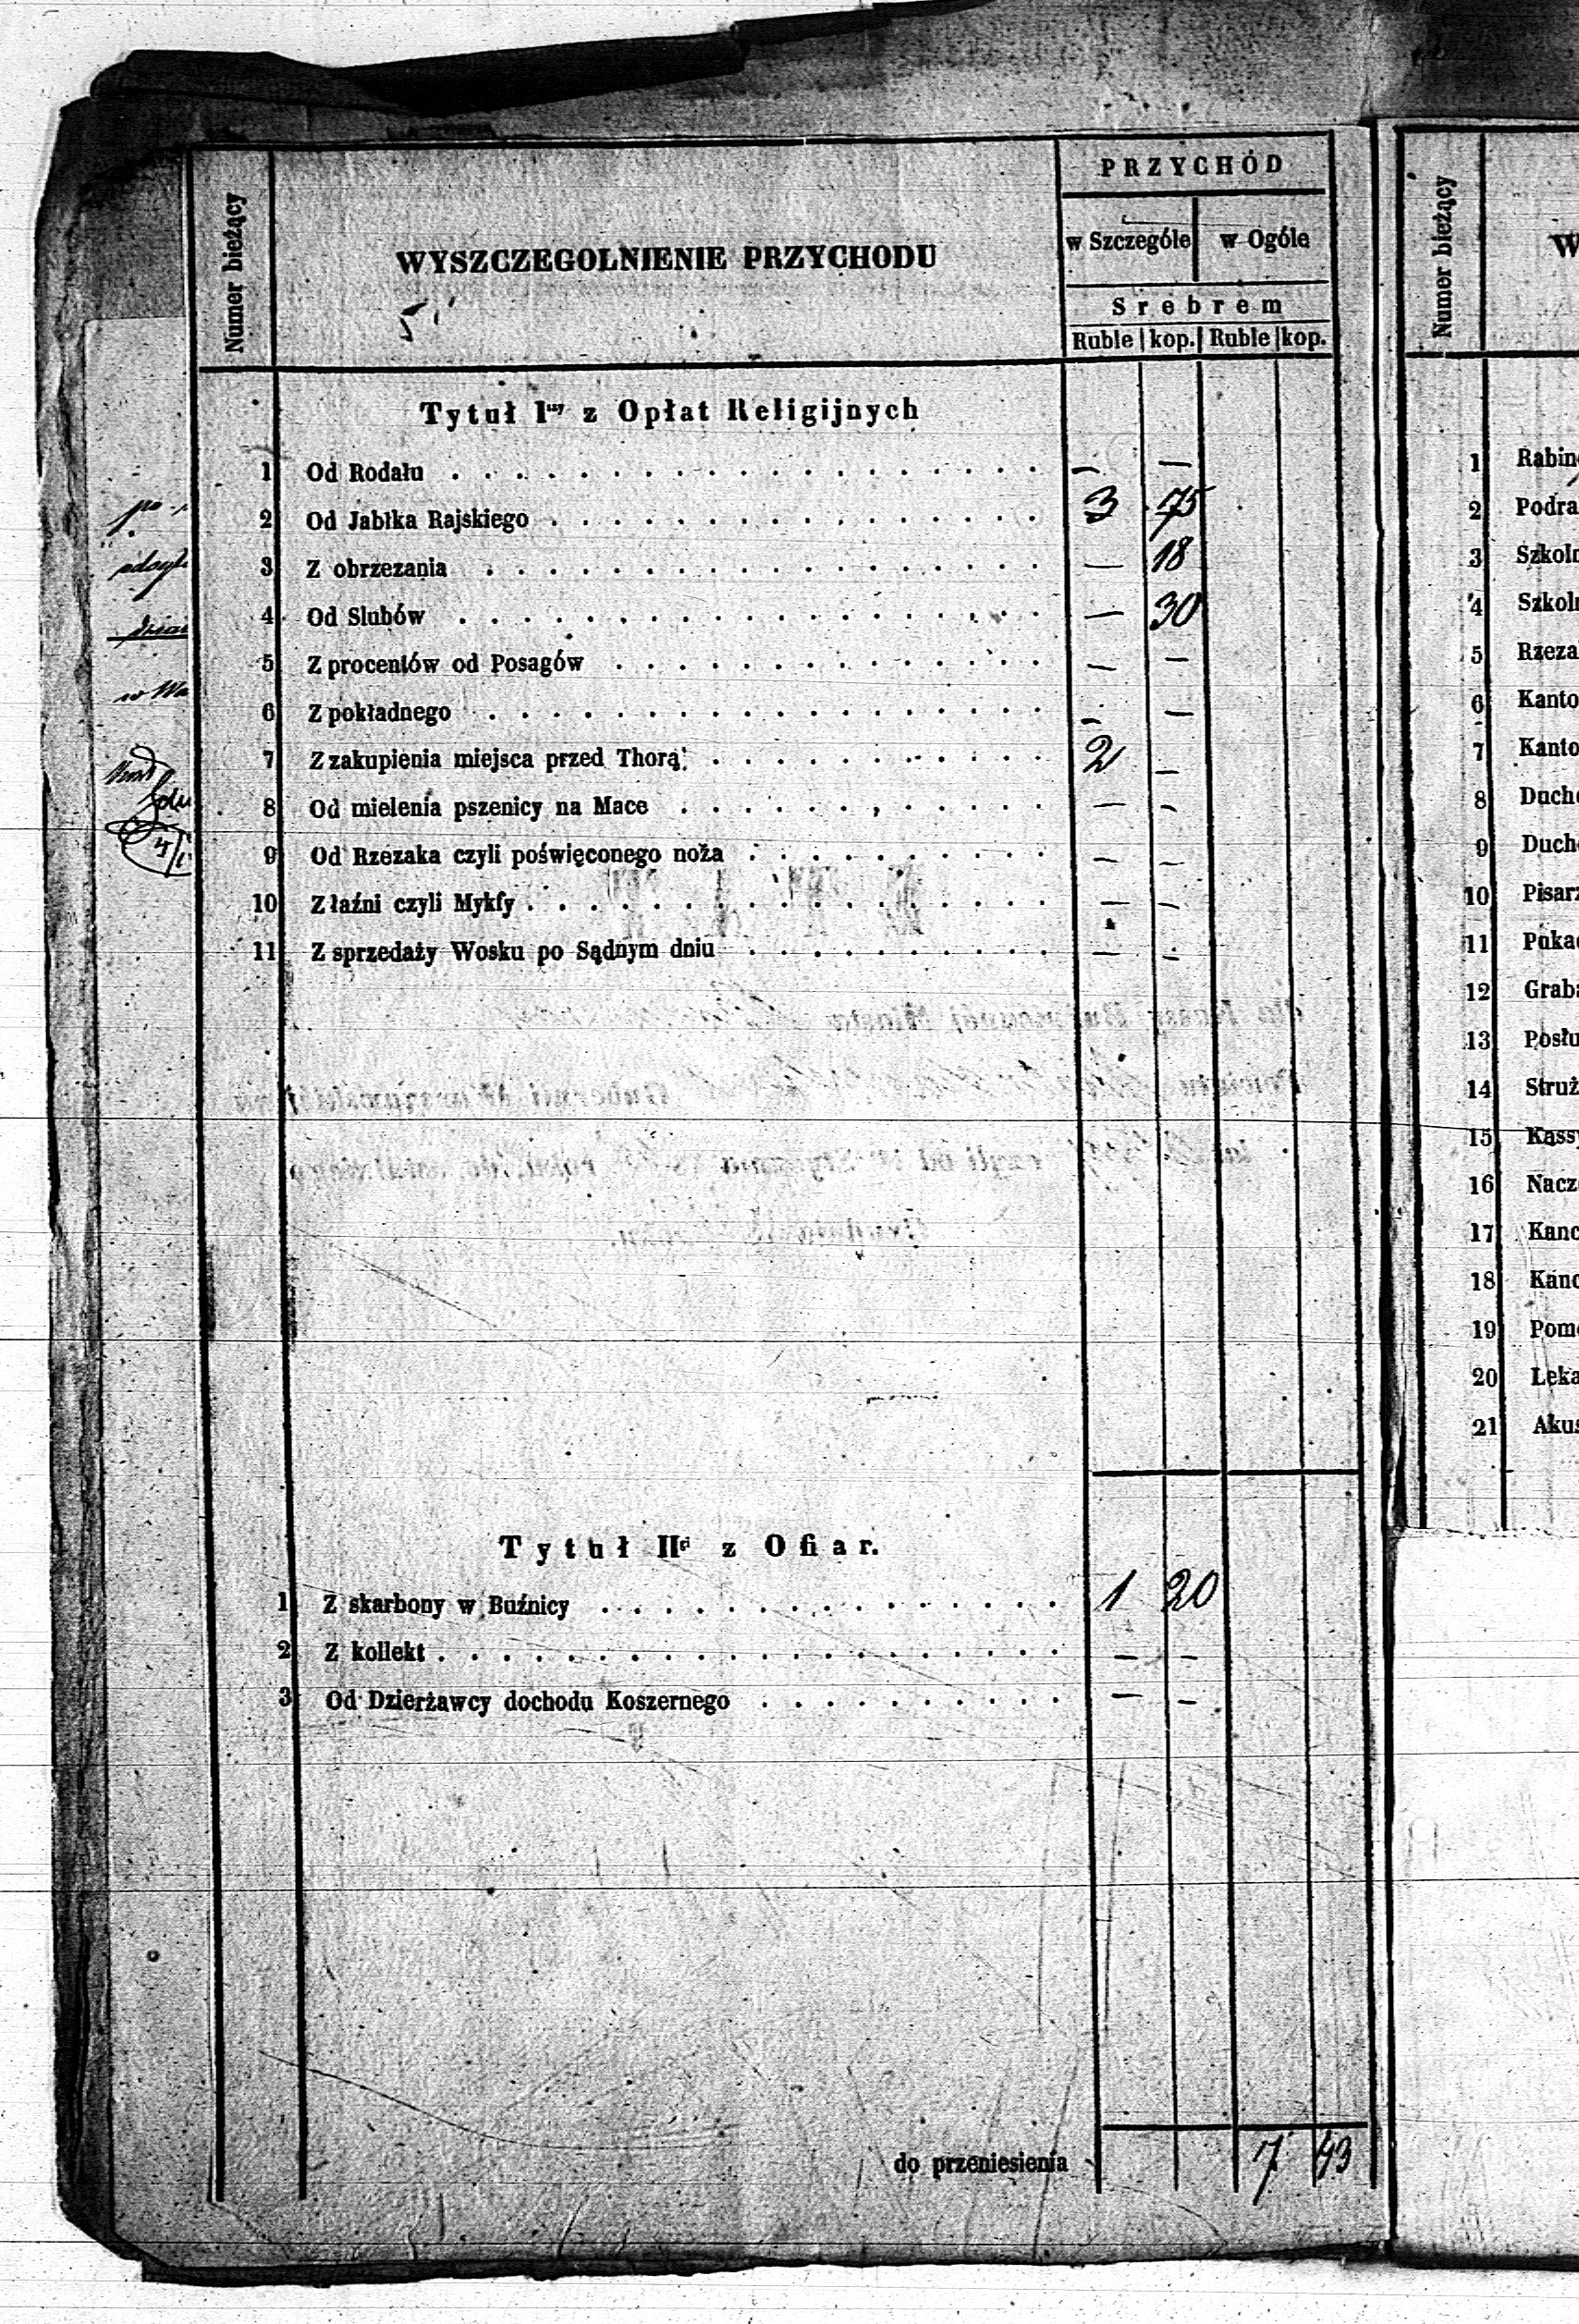 PRZYCHÓD
Numer bieżący
WYSZCZEGOLNIENIE PRZYCHODU
w Szczególe w Ogóle
Srebrem
Ruble kop. Ruble kop.
Tytuł I z Opłat Religijnych
1 Od Rodału . . . — —
2 Od Jabłka Rajskiego . . . 3 75
3 Z obrzezania . . . — 18
4 Od Slubów . . . — 30
5 Z procentów od Posagów . . . — —
6 Z pokładnego . . . — —
7 Z zakupienia miejsca przed Thorą . . . 2 —
8 Od mielenia pszenicy na Mace . . . — —
9 Od Rzezaka czyli poświęconego noża . . . — —
10 Z łaźni czyli Mykfy . . . — —
11 Z sprzedaży Wosku po Sądnym dniu . . . — —
Tytuł II z Ofiar.
1 Z skarbony w Buźnicy . . . 1 20
2 Z kollekt . . . — —
3 Od Dzierżawcy dochodu Koszernego . . . — —
do przeniesienia 7 43
Numer bieżący
W
1 Rabin
2 Podra
3 Szkoln
4 Szkoln
5 Rzeza
6 Kanto
7 Kanto
8 Ducho
9 Ducho
10 Pisarz
11 Pukac
12 Graba
13 Posłu
14 Struż
15 Kassy
16 Nacz
17 Kanc
18 Kanc
19 Pomo
20 Leka
21 Akus